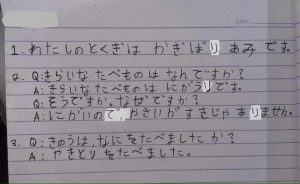 1. わたしのとくぎは かぎばり あみ です。
2. Q: きらいな たべものは なんですか?
A: きらいな たべものは にがうりです。
Q: そうですか。なぜですか?
A: にがいので、やさいが すきじゃ ありません。
3. Q: きのうは、なにをたべましたか?
A: やきとり をたべました。